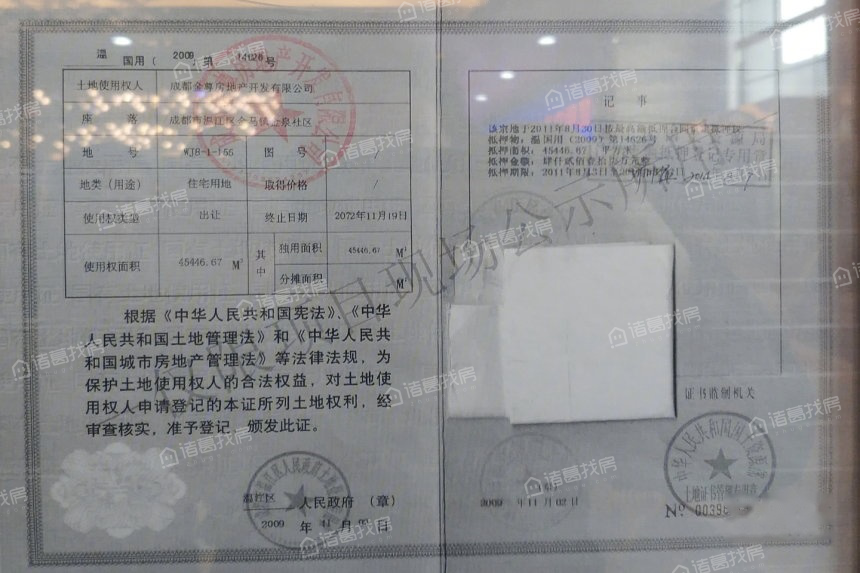 温 国用（ 2009 第 14626 号
土地使用权人 成都金尊房地产开发有限公司
座 落 成都市温江区金马镇金泉社区
地 号 WJ8-1-155 图 号 /
地类（用途） 住宅用地 取得价格 /
使用权类型 出让 终止日期 2072年11月19日
使用权面积 45446.67 M² 其中 独用面积 45446.67 M²
分摊面积 M²
根据《中华人民共和国宪法》、《中华
人民共和国土地管理法》和《中华人民共
和国城市房地产管理法》等法律法规，为
保护土地使用权人的合法权益，对土地使
用权人申请登记的本证所列土地权利，经
审查核实，准予登记，颁发此证。
温江区 人民政府（章）
2009 年 11 月 日
记 事
该宗地于2011年8月30日按最高额抵押
抵押物：温国用（2009）第14626号
抵押面积：45446.67 平方米
抵押金额：肆仟贰佰壹拾
抵押期限：2011年8月31日
证书监制机关
中华人民共和国国土资源部
土地证书管理专用章
2009 年 11 月 02 日
Nº 00396
仅限项目现场公示
诸葛找房